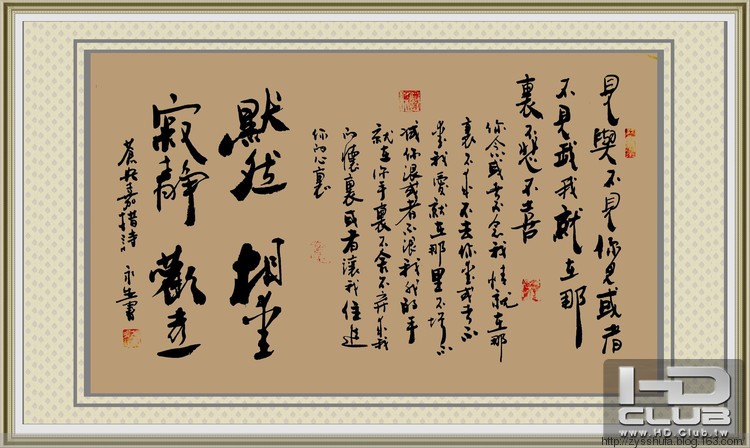 見與不見你見或者
不見我我就在那
裏不悲不喜
你念或者不念我情就在那
裏不來不去你愛或者不
愛我愛就在那里不增不
减你跟或者不跟我我的手
就在你手裏不舍不弃來我
的懷裏或者讓我住進
你的心裏
默然 相愛
寂靜 歡喜
蒼央嘉措詩 永生書
HD
CLUB
www.HD.Club.tw
http://zysshufa.blog.163.com/